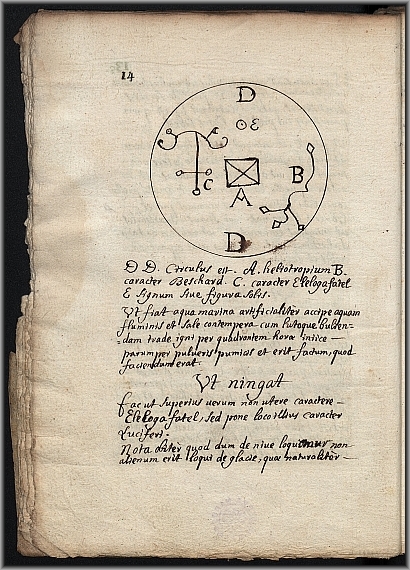 14
D
☉ E
B
C
A
D
D D. Circulus est. A. heliotropium B.
caracter Beschard. C. caracter Elelogafatel
E signum sive figura Solis.
Ut fiat aqua marina artificialiter accipe aquam
fluminis et sale contempera cum lutoque
dam trade igni per quadrantem horæ iniice
parumper pulveris pumicis et erit factum, quod
faciendum erat.
Ut ningat
fac ut superius verum non utere caractere
Elelogafatel, sed pone loco illius caracter
Luciferi.
Nota obiter quod dum de nive loquimur non
alienum erit loqui de glacie, quæ naturaliter